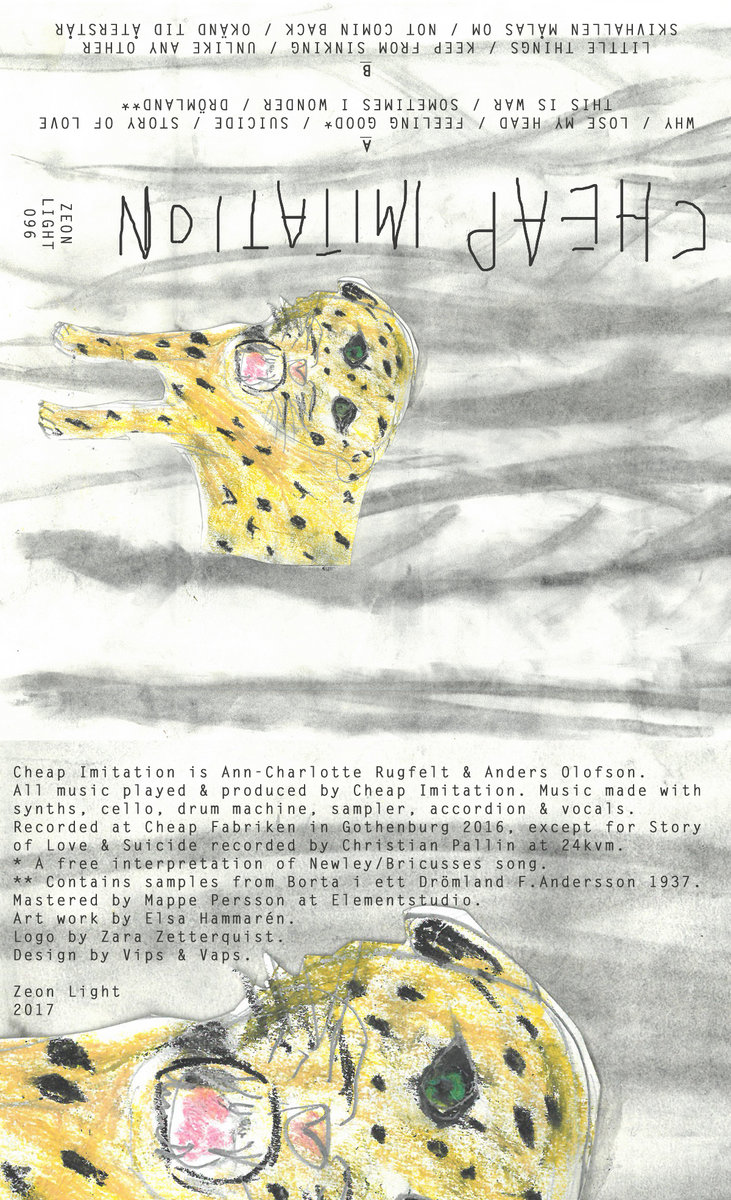 CHEAP IMITATION
ZEON
LIGHT
096
A
WHY / LOSE MY HEAD / FEELING GOOD* / SUICIDE / STORY OF LOVE
THIS IS WAR / SOMETIMES I WONDER / DRÖMLAND**
B
LITTLE THINGS / KEEP FROM SINKING / UNLIKE ANY OTHER
SKIVHALLEN MÅLAS OM / NOT COMIN BACK / OKÄND TID ÅTERSTÅR
Cheap Imitation is Ann-Charlotte Rugfelt & Anders Olofson.
All music played & produced by Cheap Imitation. Music made with
synths, cello, drum machine, sampler, accordion & vocals.
Recorded at Cheap Fabriken in Gothenburg 2016, except for Story
of Love & Suicide recorded by Christian Pallin at 24kvm.
* A free interpretation of Newley/Bricusses song.
** Contains samples from Borta i ett Drömland F.Andersson 1937.
Mastered by Mappe Persson at Elementstudio.
Art work by Elsa Hammarén.
Logo by Zara Zetterquist.
Design by Vips & Vaps.
Zeon Light
2017